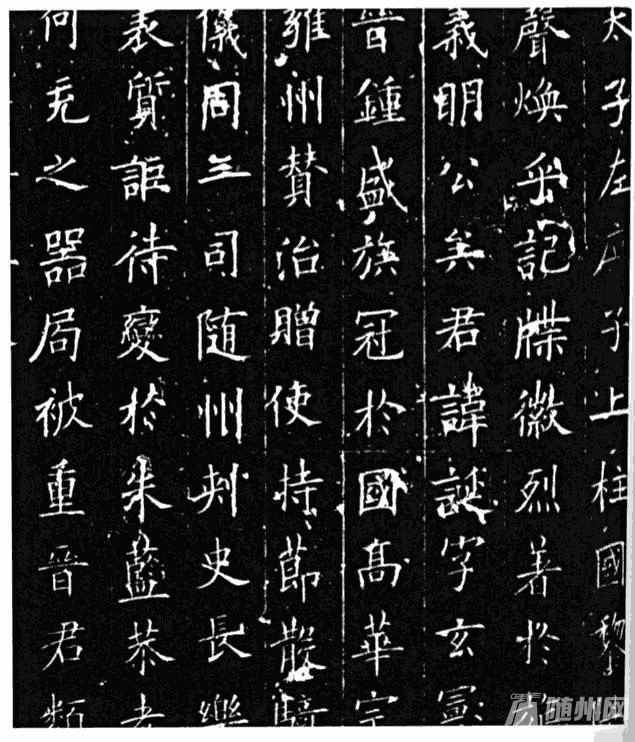 太子左庶子上柱國黎
聲煥乎記牒徽烈著於
義明公矣君諱誕字玄憲
晉鍾盛族冠於國高華宗
雍州贊治贈使持節散騎
儀同三司随州刺史長樂
表質詎待變於朱藍恭孝
何充之器局被重晉君類
随州网